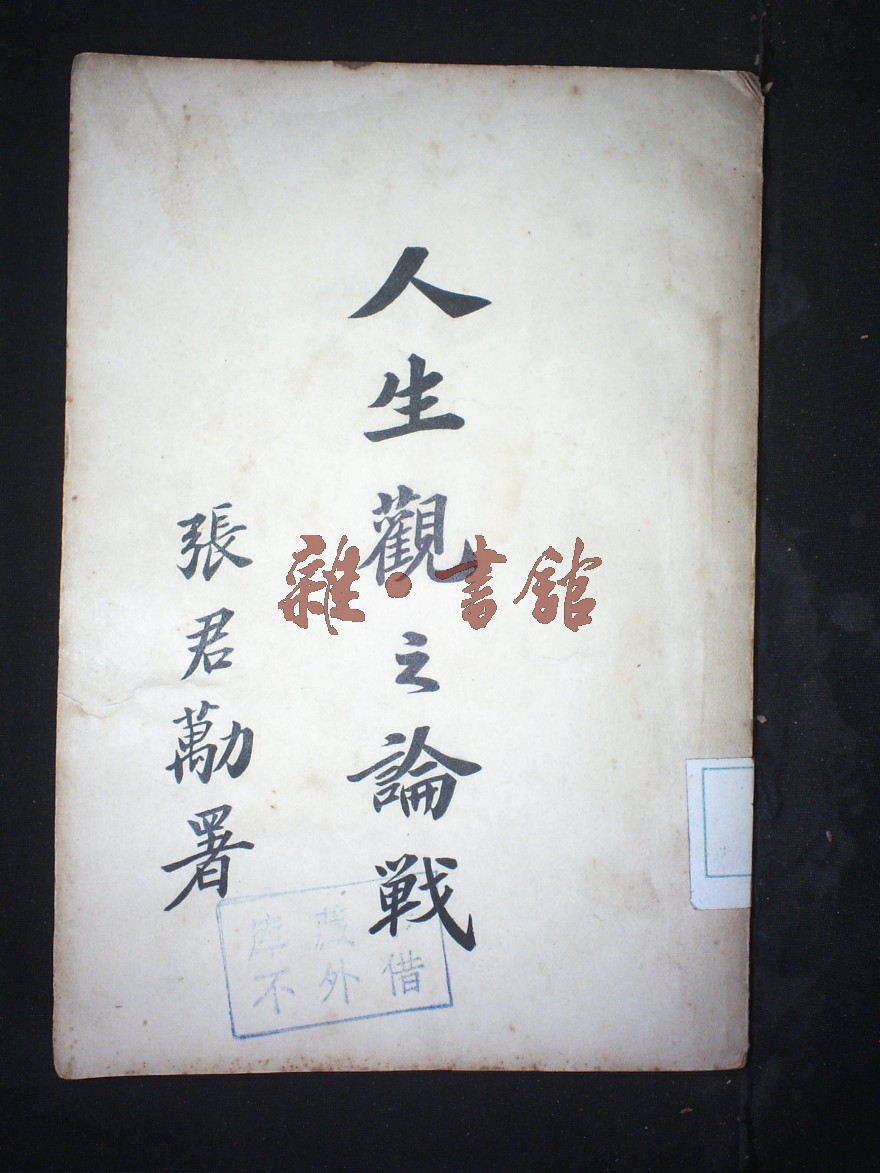 人生觀之論戰
張君勱署
雜·書館
庫藏
不外借